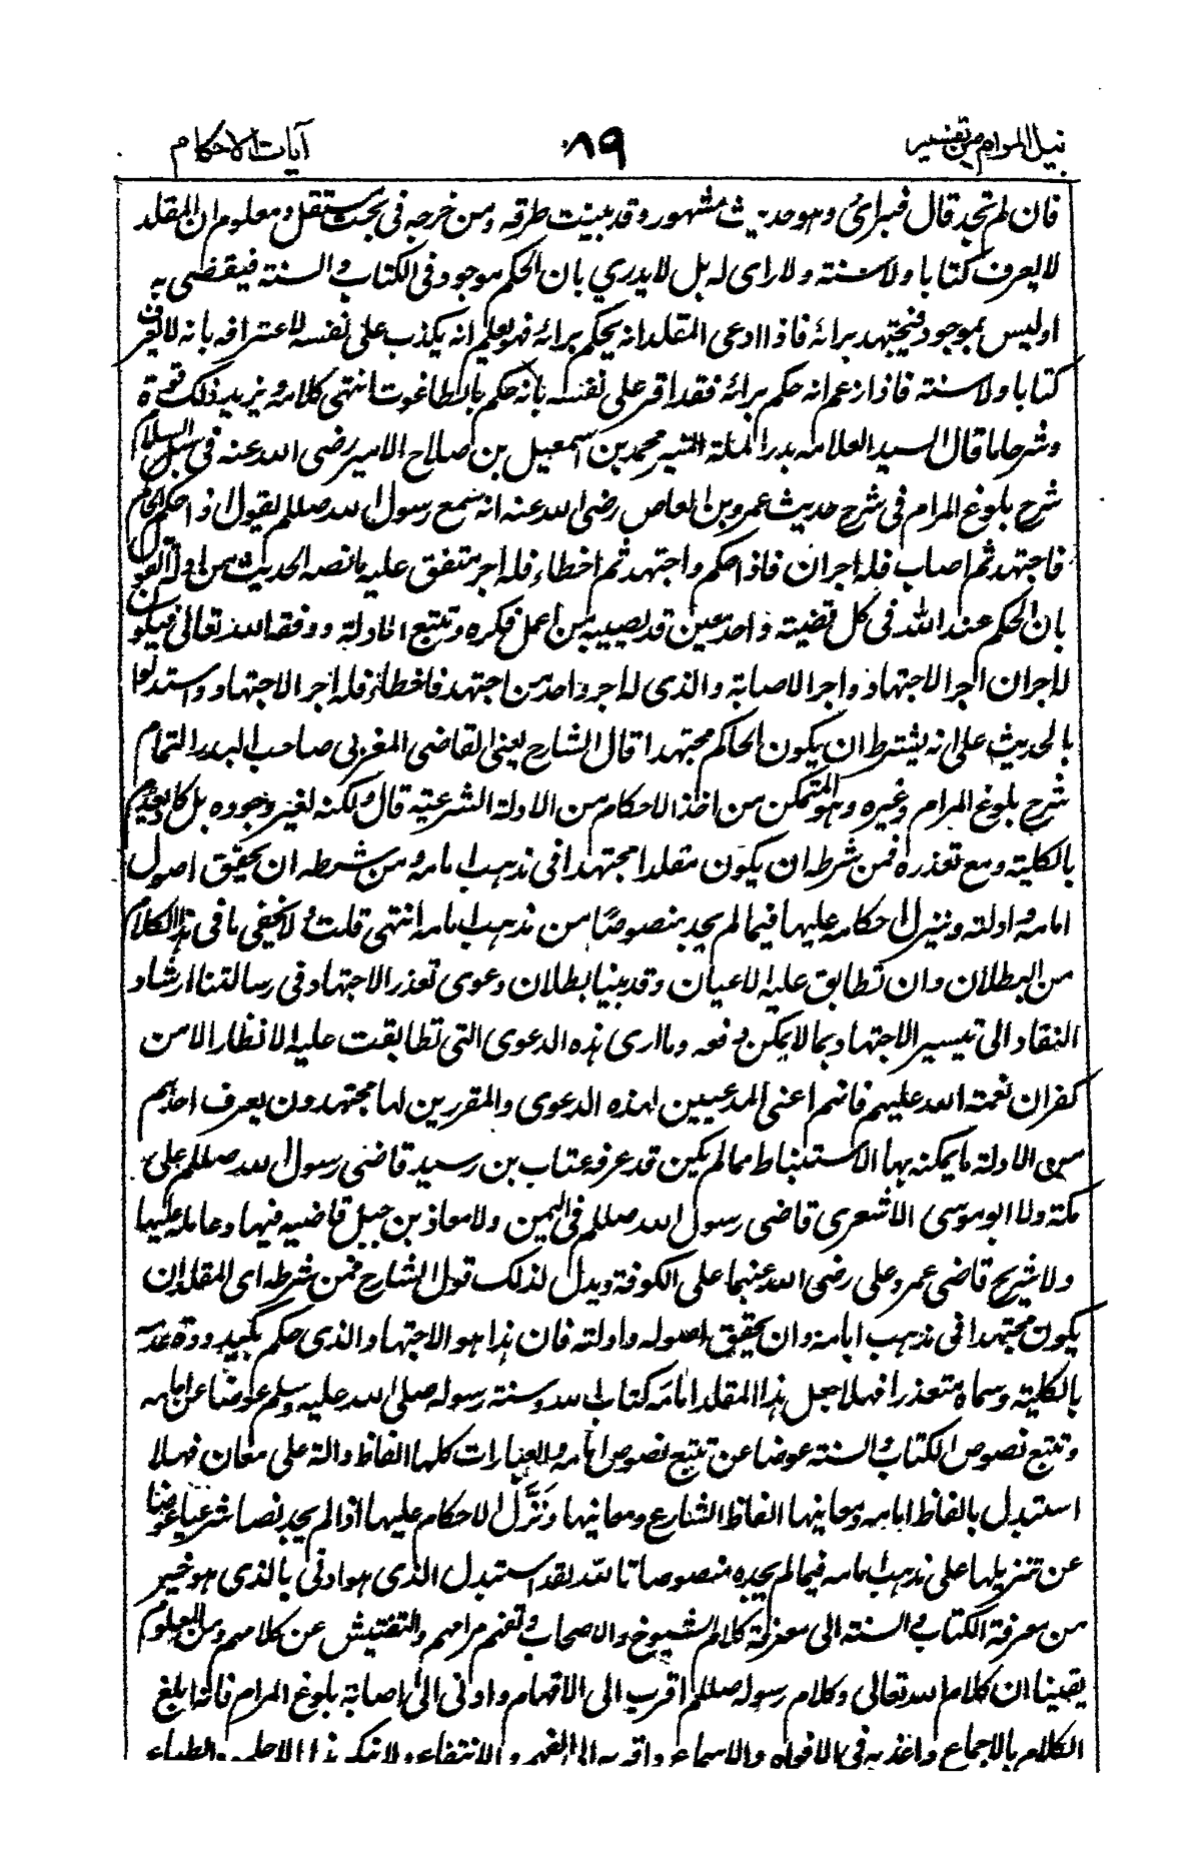 نيل المرام من تفسير ٨٩ آيات الاحكام
فان لم تجد قال فبرائي وهو حديث مشهور وقد بينت طرقه ومن خرجه في بحث مستقل ومعلوم ان المقلد
لا يعرف كتابا ولا سنته ولا راى له بل لا يدري بان الحكم موجود في الكتاب والسنة فيقضى به
اوليس بموجود فيجتهد برائه فاذا ادعى المقلد انه يحكم برائه فهو يعلم انه يكذب على نفسه لاعترافه بانه لا يعرف
كتابا ولا سنته فاذا زعم انه حكم برائه فقد اقر على نفسه بانه حكم بالطاغوت انتهى كلامه ويزيد ذلك قوة
وشرحا ما قال السيد العلامه بدر الملة المنير محمد بن اسمعيل بن صلاح الامير رضى الله عنه في سبل السلام
شرح بلوغ المرام في شرح حديث عمرو بن العاص رضى الله عنه انه سمع رسول الله صللم يقول اذا حكم الحاكم
فاجتهد ثم اصاب فله اجران فاذا حكم واجتهد ثم اخطاء فله اجر متفق عليه ما نصه الحديث من ادلة القول
بان الحكم عند الله في كل قضيته واحد معين قد يصيبه من اعمل فكره وتتبع الادلة ووفقه الله تعالى فيكون
له اجران اجر الاجتهاد واجر الاصابة والذى له اجر واحد من اجتهد فاخطاء فله اجر الاجتهاد واستدلوا
بالحديث على انه يشترط ان يكون الحاكم مجتهدا قال الشارح يعنى القاضى المغربى صاحب البدر التمام
شرح بلوغ المرام وغيره وهو المتمكن من اخذ الاحكام من الادلة الشرعية قال ولكنه لغير وجوده بل كاد يعدم
بالكلية ومع تعذره فمن شرطه ان يكون مقلدا مجتهدا في مذهب امامه ومن شرطه ان يحقق اصول
امامه وادلته وينزل احكامه عليها فيما لم يجد منصوصًا من مذهب امامه انتهى قلت ولا يخفى ما في هذا الكلام
من البطلان وان تطابق عليه الاعيان وقد بينا بطلان دعوى تعذر الاجتهاد في رسالتنا ارشاد
النقاد الى تيسير الاجتهاد بما لا يمكن دفعه وما ارى هذه الدعوى التى تطابقت عليه الانظار الا من
كفران نعمة الله عليهم فانهم اعنى المدعيين لهذه الدعوى والمقررين لها مجتهدون يعرف احدهم
من الادلة ما يمكنه بها الاستنباط مما لم يكن قد عرفه عتاب بن رسيد قاضى رسول الله صللم على
مكة ولا ابو موسى الاشعرى قاضى رسول الله صللم في اليمن ولا معاذ بن جبل قاضيه فيها وعامله عليها
ولا شريح قاضى عمر وعلى رضى الله عنهما على الكوفة ويدل لذلك قول الشارح فمن شرطه اى المقلد ان
يكون مجتهدا في مذهب امامه وان يحقق اصوله وادلته فان هذا هو الاجتهاد والذى حكم بكيدودة عدمه
بالكلية وسماه متعذرا فهلا جعل هذا المقلد امامه كتاب الله وسنة رسوله صلى الله عليه وسلم عوضا عن امامه
وتتبع نصوص الكتاب والسنة عوضا عن تتبع نصوص امامه والعبارات كلها الفاظ دالة على معان فهلا
استبدل بالفاظ امامه ومعانيها الفاظ الشارع ومعانيها ونَزَّل الاحكام عليها اذا لم يجد نصا شرعيا عوضا
عن تنزيلها على مذهب امامه فيما لم يجده منصوصا تالله لقد استبدل الذى هو ادنى بالذى هو خير
من معرفة الكتاب والسنه الى معرفة كلام الشيوخ والاصحاب وتفهم مرامهم والتفتيش عن كلامهم ومن المعلوم
يقينا ان كلام الله تعالى وكلام رسوله صللم اقرب الى الافهام وادنى الى اصابة بلوغ المرام فانه ابلغ
الكلام بالاجماع واعذبه في الافواه والاسماع واقربه الى الفهم والانتفاع ولا ينكر هذا الا جلمود الطباع